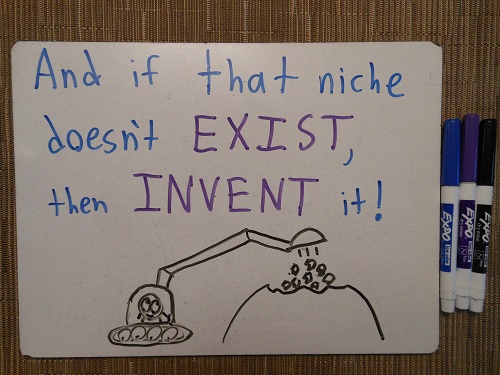 And if that niche
doesn't EXIST,
then INVENT it!
EXPO
EXPO
EXPO